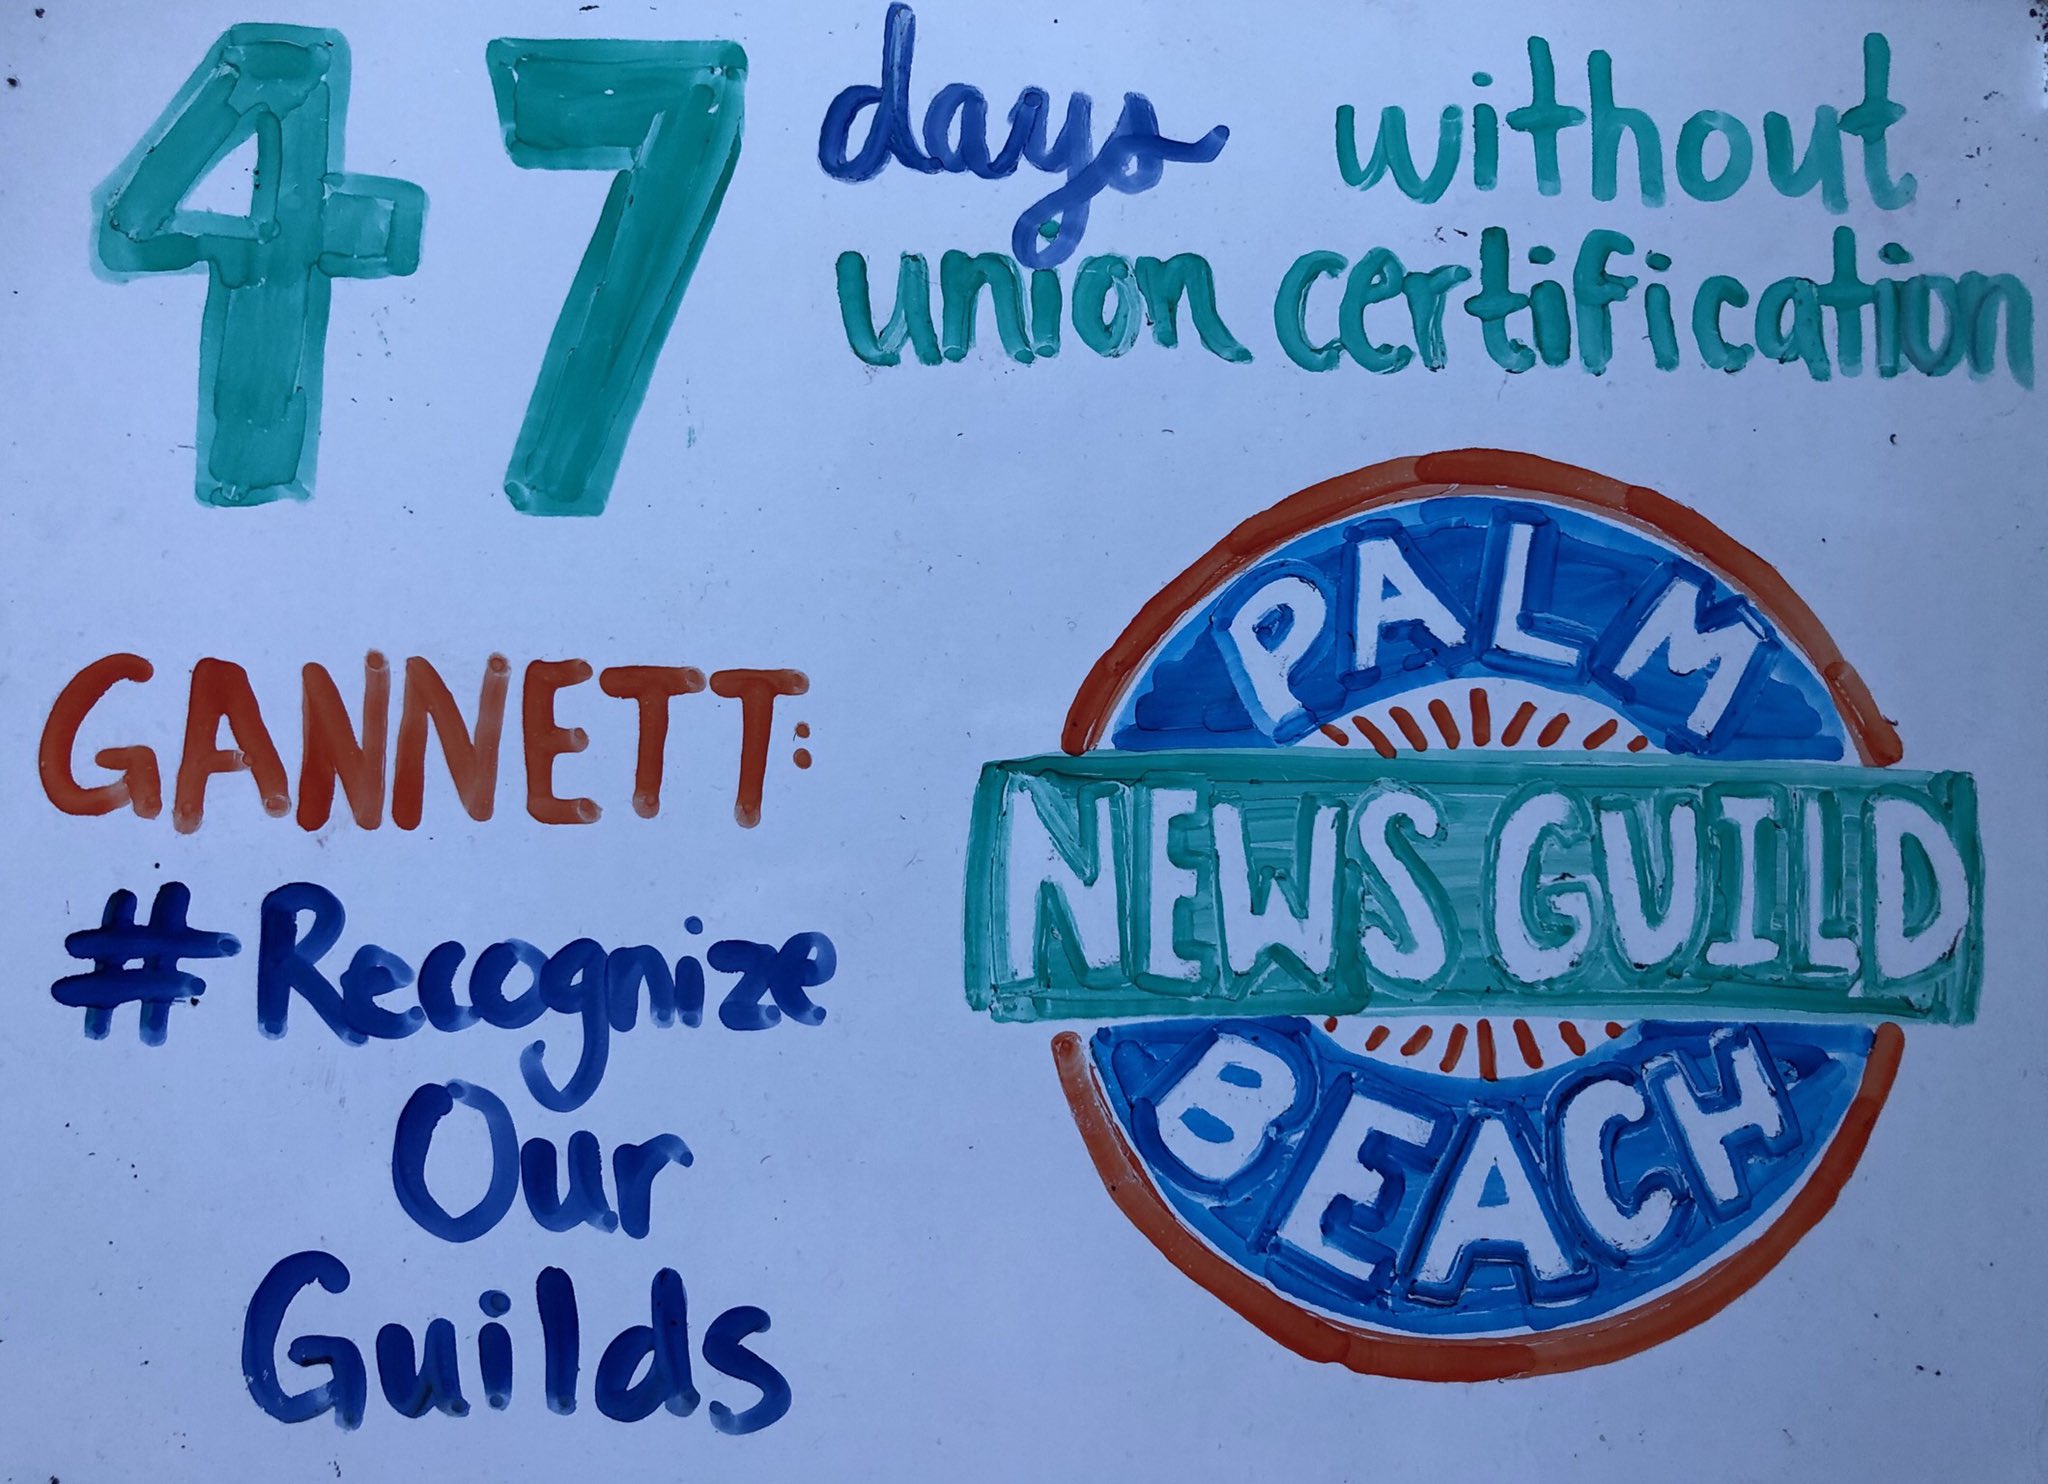 47 days without
union certification
GANNETT:
#Recognize
Our
Guilds
PALM
NEWS GUILD
BEACH